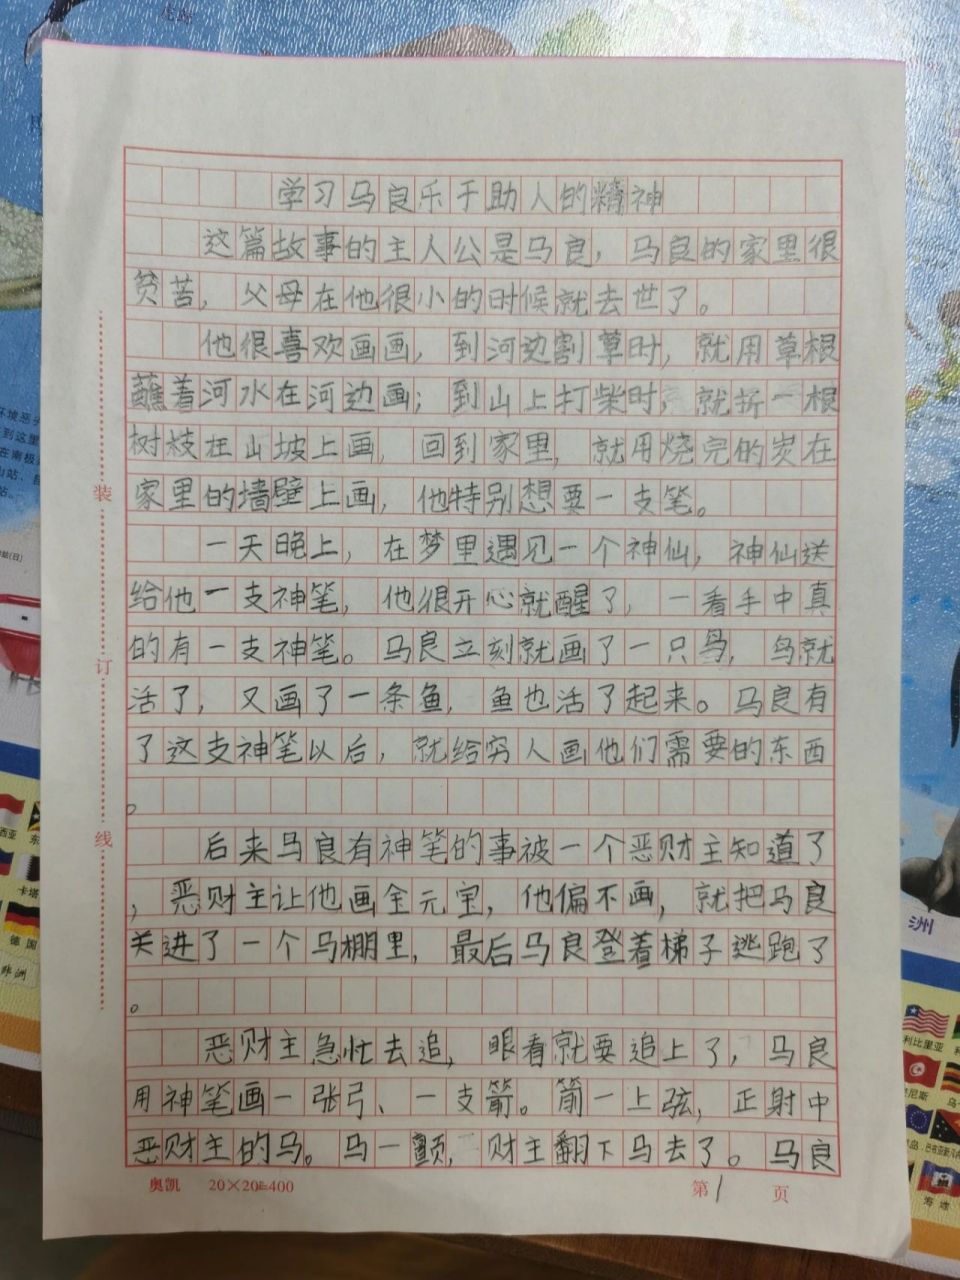 学习马良乐于助人的精神
这篇故事的主人公是马良，马良的家里很
贫苦，父母在他很小的时候就去世了。
他很喜欢画画，到河边割草时，就用草根
蘸着河水在河边画；到山上打柴时，就折一根
树枝在山坡上画，回到家里，就用烧完的炭在
家里的墙壁上画，他特别想要一支笔。
一天晚上，在梦里遇见一个神仙，神仙送
给他一支神笔，他很开心就醒了，一看手中真
的有一支神笔。马良立刻就画了一只鸟，鸟就
活了，又画了一条鱼，鱼也活了起来。马良有
了这支神笔以后，就给穷人画他们需要的东西
。
后来马良有神笔的事被一个恶财主知道了
，恶财主让他画金元宝，他偏不画，就把马良
关进了一个马棚里，最后马良登着梯子逃跑了
。
恶财主急忙去追，眼看就要追上了，马良
用神笔画一张弓、一支箭。箭一上弦，正射中
恶财主的马。马一颤，财主翻下马去了。马良
奥凯 20×20=400
第1页
装
订
线
洲
德国
非洲
卡塔
利比里亚
海地